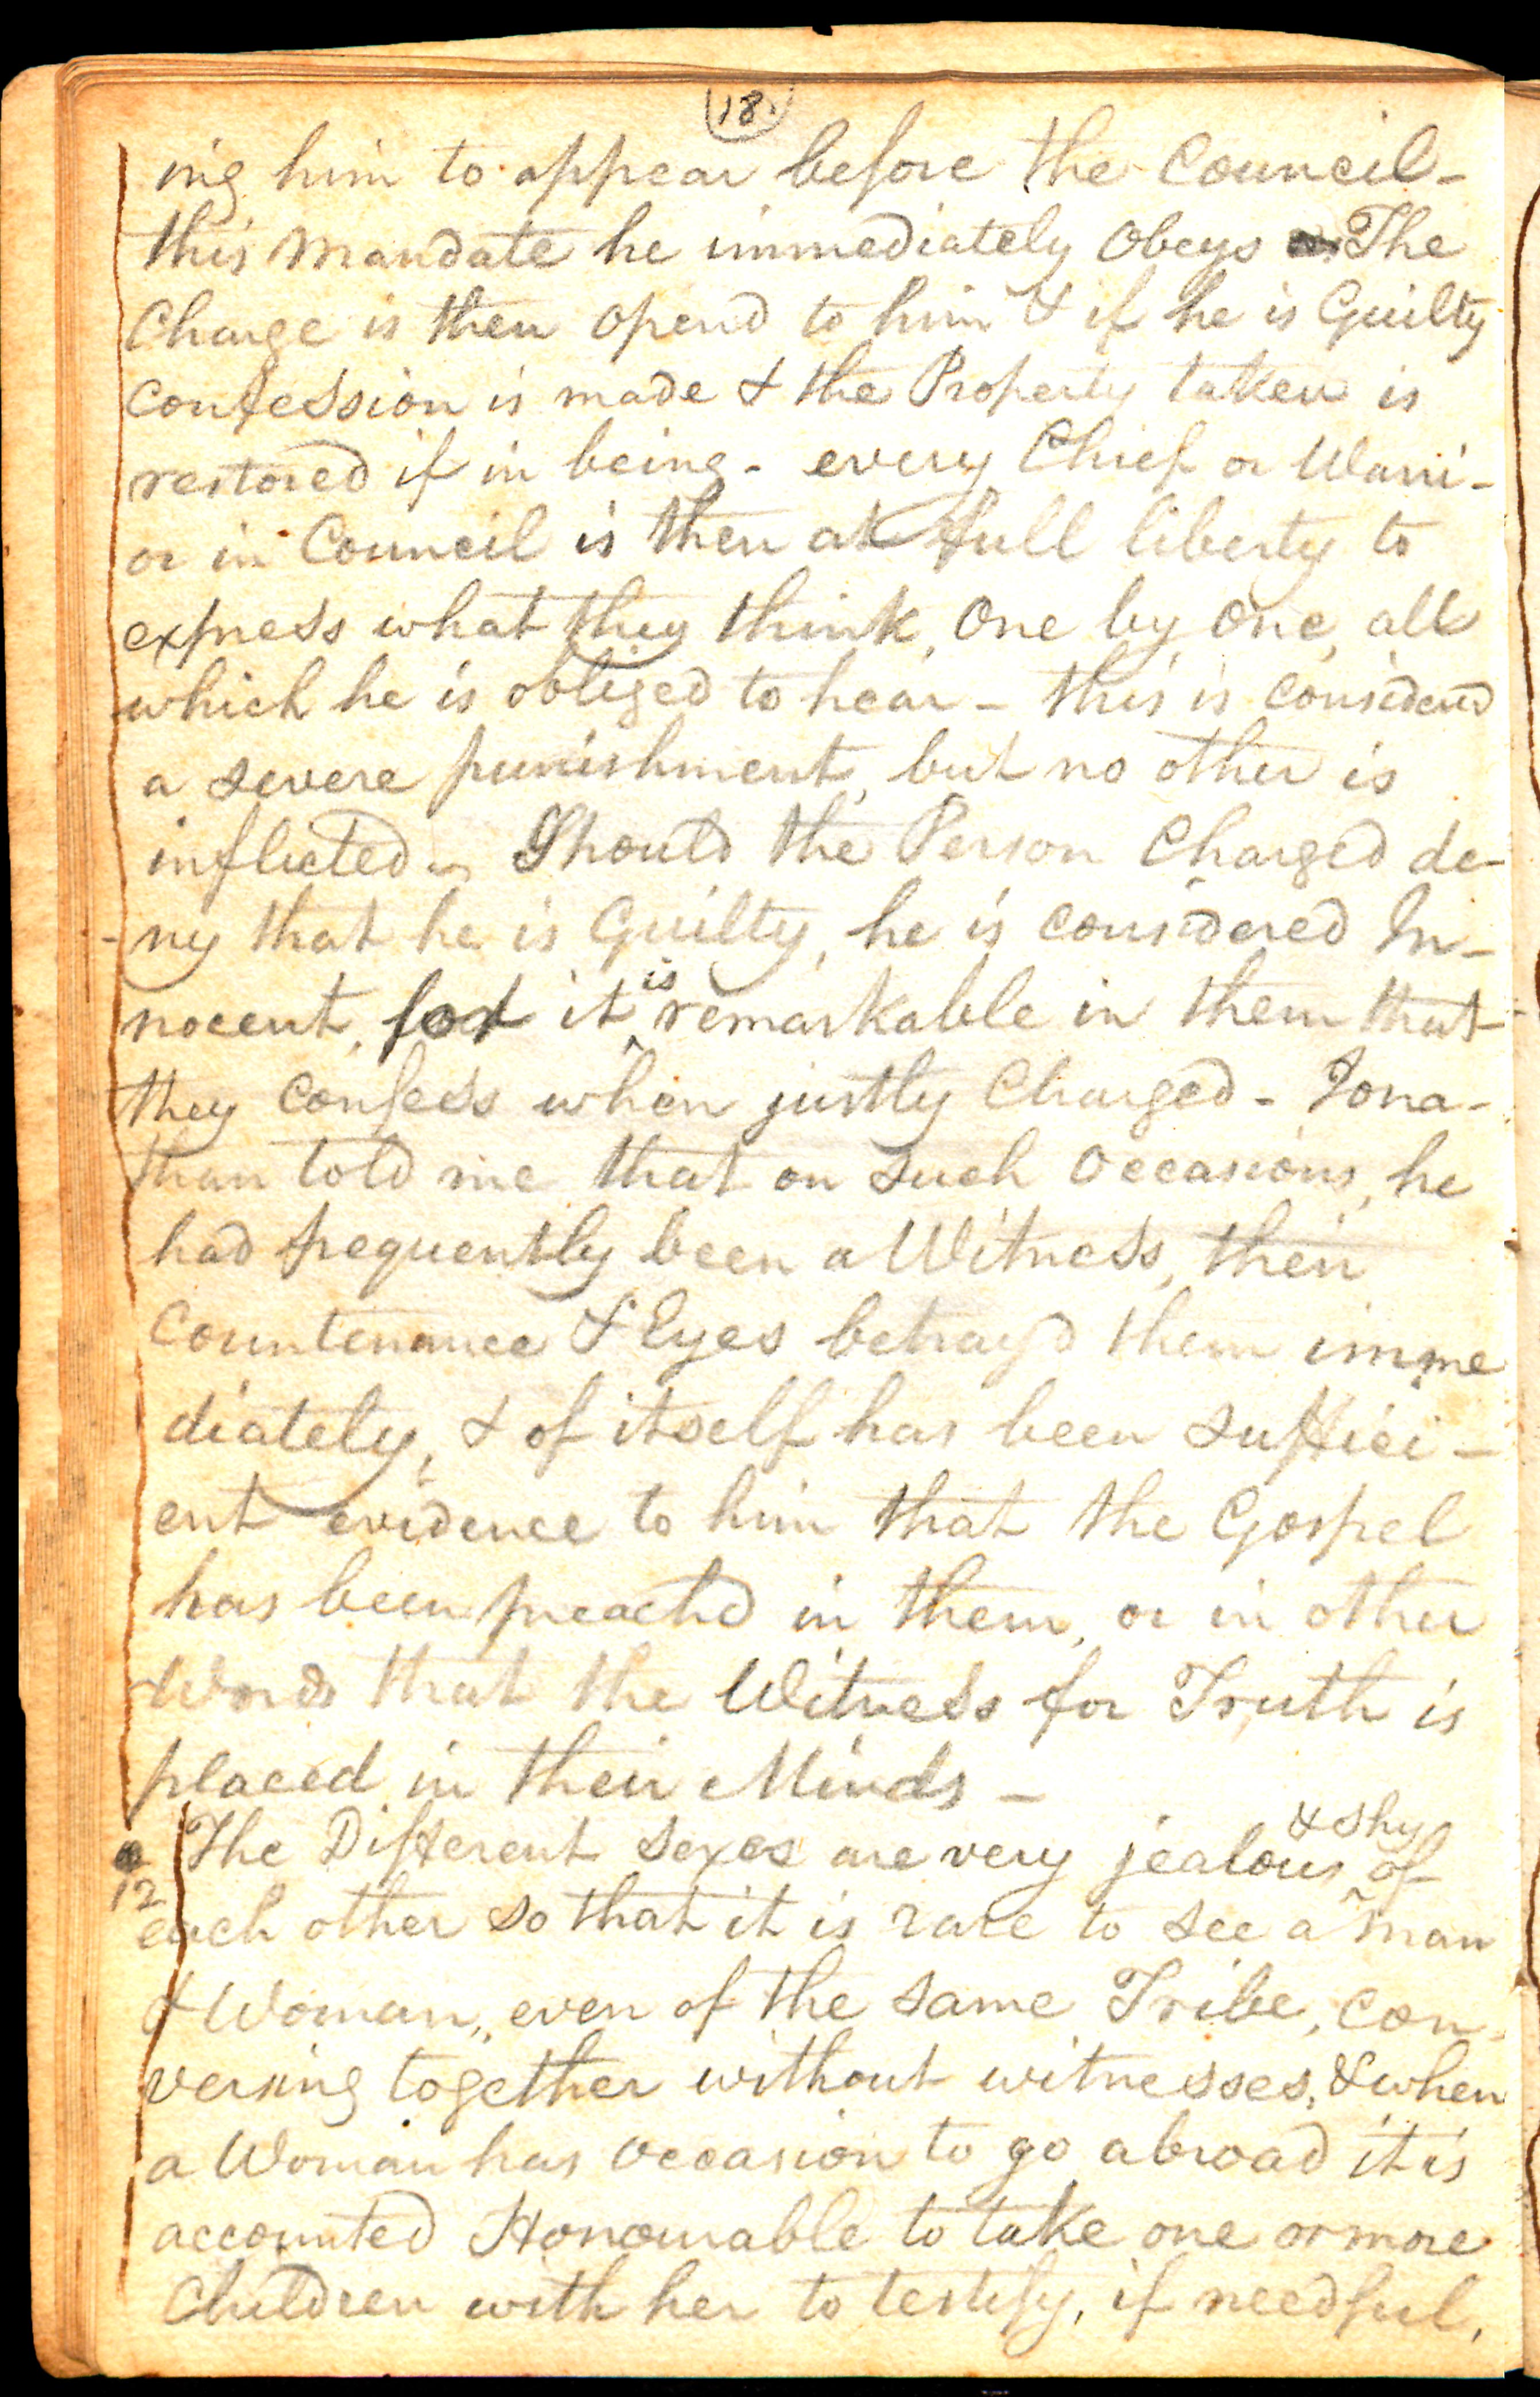 18.
ing him to appear before the Council-
this Mandate he immediately Obeys The
Charge is then opend to him & if he is Guilty
confession is made & the Property taken is
restored if in being - every Chief or Warri-
or in Council is then at full liberty to
express what they think, One by One, all
which he is obliged to hear - this is Considered
a severe punishment, but no other is
inflicted - Should the Person Charged de-
-ny that he is Guilty, he is Considered In-
nocent, for it is remarkable in them that
they Confess when justly Charged - Jona-
than told me that on such Occasions, he
had frequently been a Witness, their
Countenance & Eyes betray'd them imme
diately, & of itself has been suffici-
ent evidence to him that the Gospel
has been preach'd in them, or in other
Words that the Witness for Truth is
placed in their Minds -
The Different Sexes are very jealous & shy of
12
each other so that it is rare to see a man
& Woman, even of the same Tribe, con-
versing together without witnesses, & when
a Woman has Occasion to go abroad it is
accounted Honourable to take one or more
Children with her to testify, if needful,